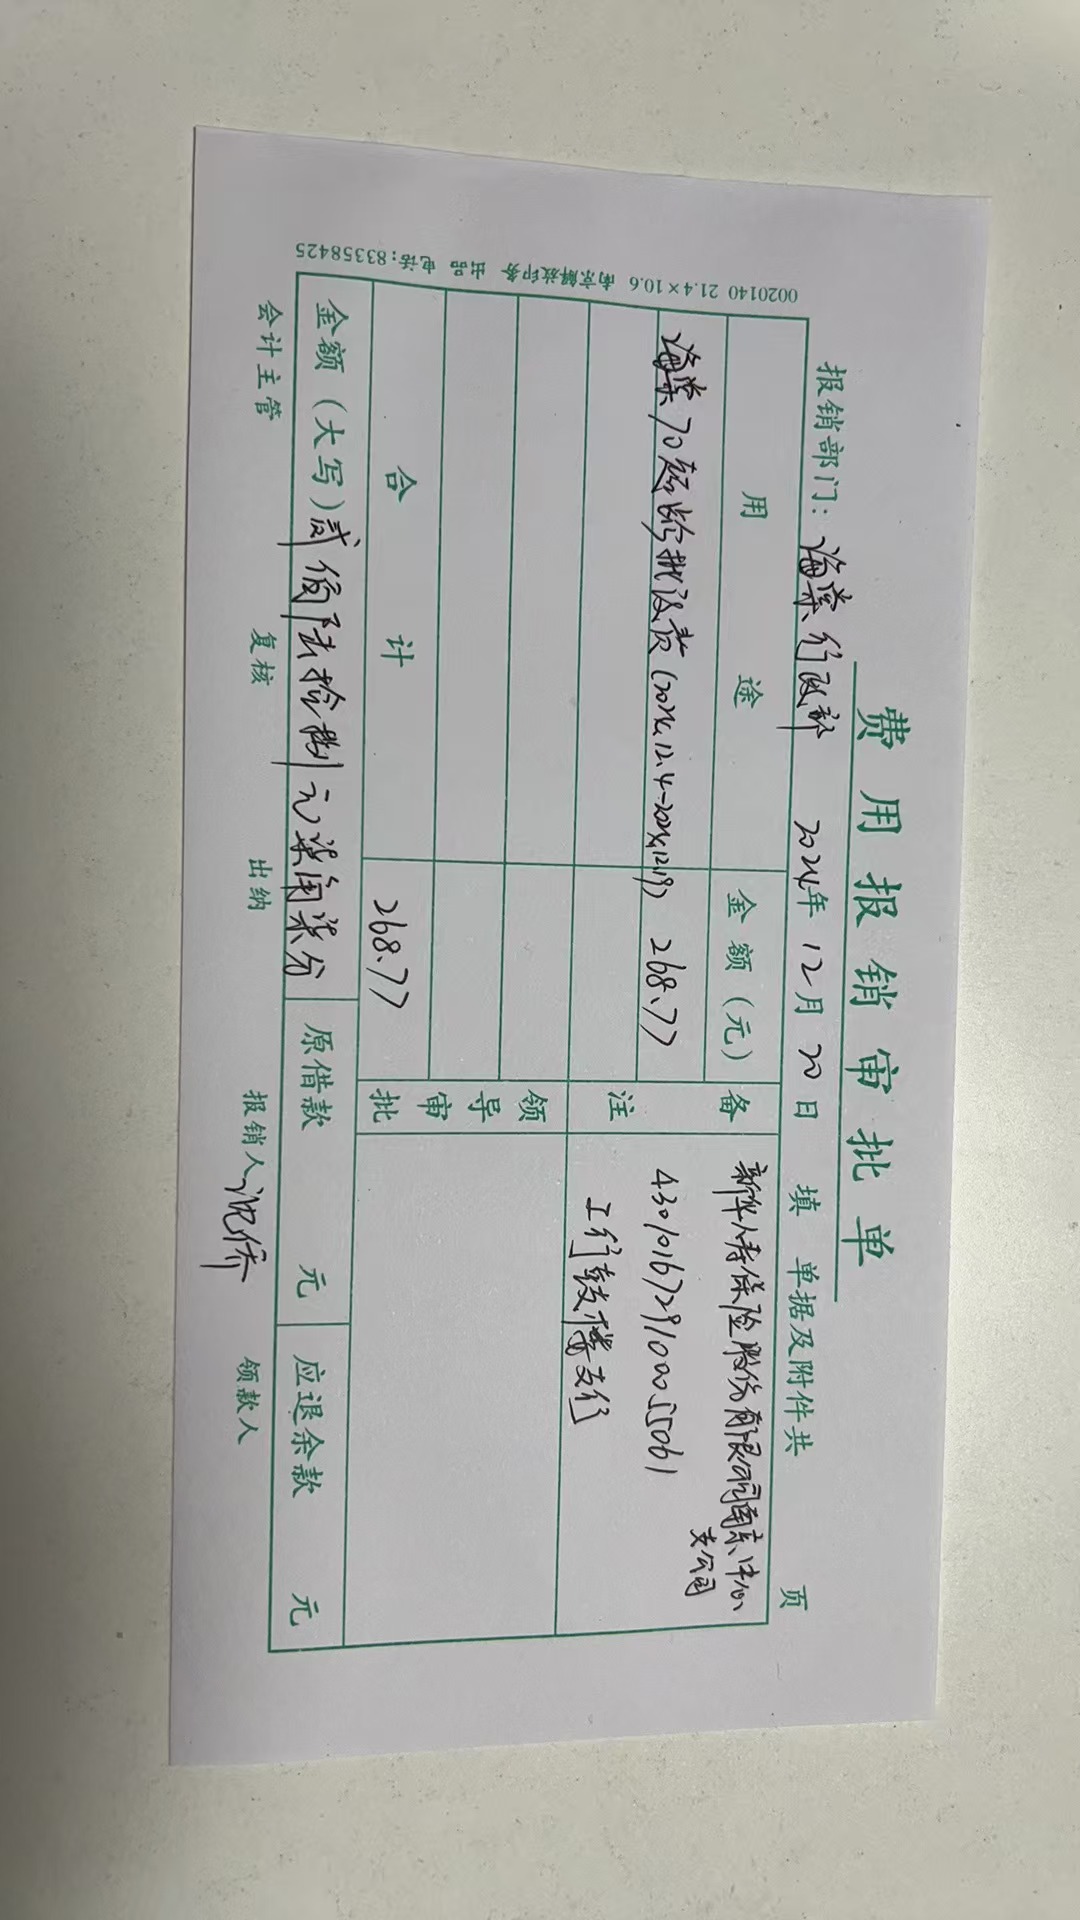 费用报销审批单
报销部门：海棠行政部 2024年12月20日 填 单据及附件共 页
用途 金额（元） 备注
海棠70 268.77
(2024.12.4-2024.12.19)
新华人寿保险股份有限公司南京中心
支公司
工行鼓楼支行
领导审批
合计 268.77
金额（大写）贰佰陆拾捌元柒角柒分 原借款 元 应退余款 元
会计主管 复核 出纳 报销人 沈侨 领款人
0020140 21.4×10.6 南京解放印务 出品 电话:83358425